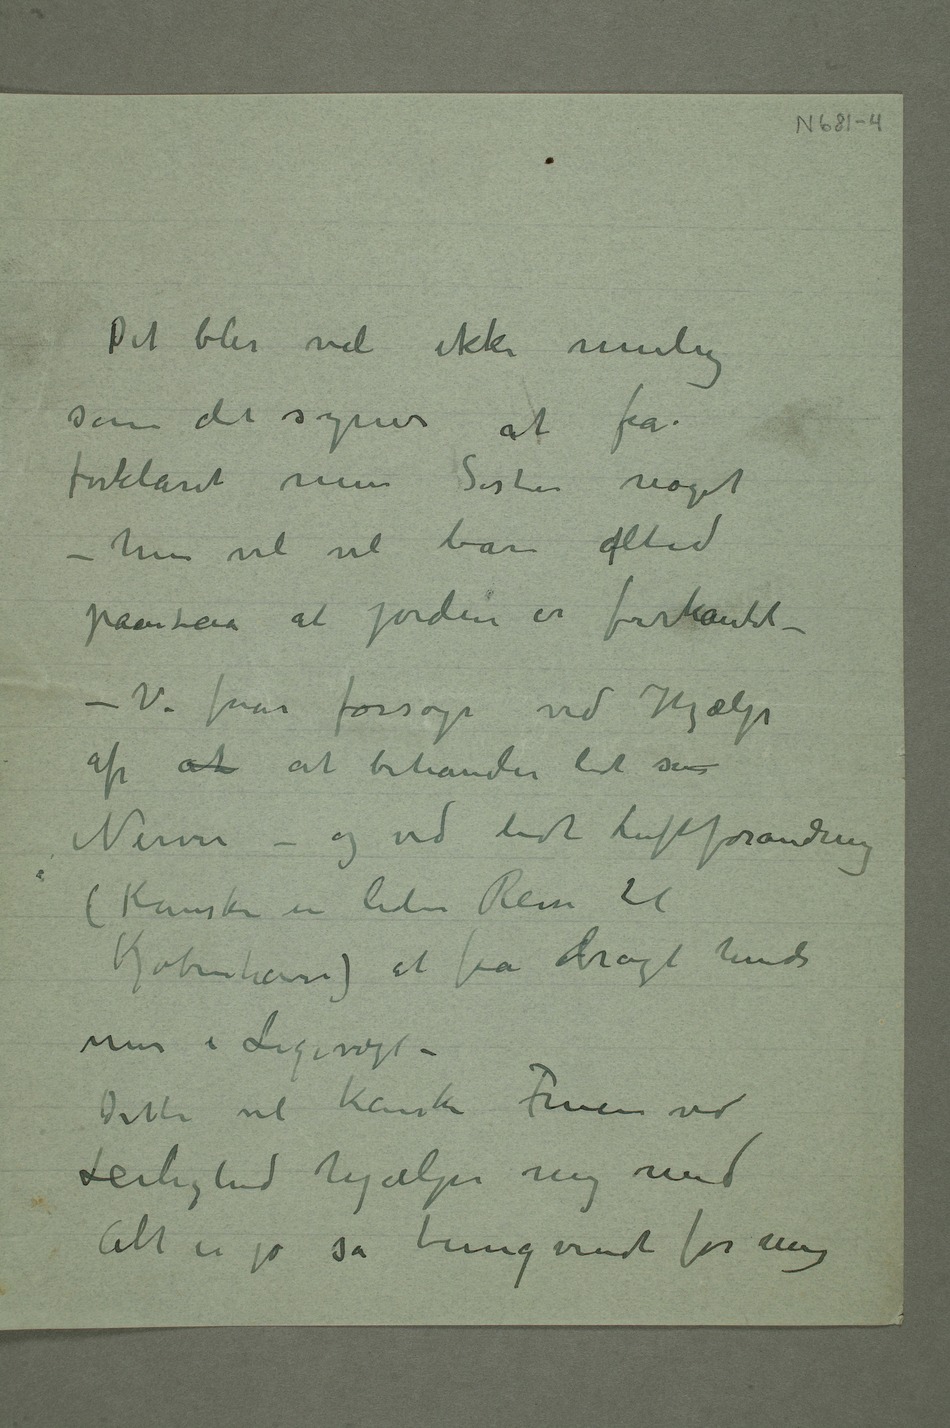 N 681-4
Det blir vel ikke mulig
som det synes at få
forklaret min Søster noget
– hun vil vel bare altid
paastaa at jorden er firkantet –
– Vi faar forsøge ved Hjælp
af at at behandle lidt sin
Nerver – og ved lidt Luftforandring
(Kanske en liden Reise til
Kjøbenhavn) at få bragt hends
mer i Ligevægt –
Dette vil kanske Fruen ved
Leilighed hjælpe mig med
Alt er jo så tungvindt for mig